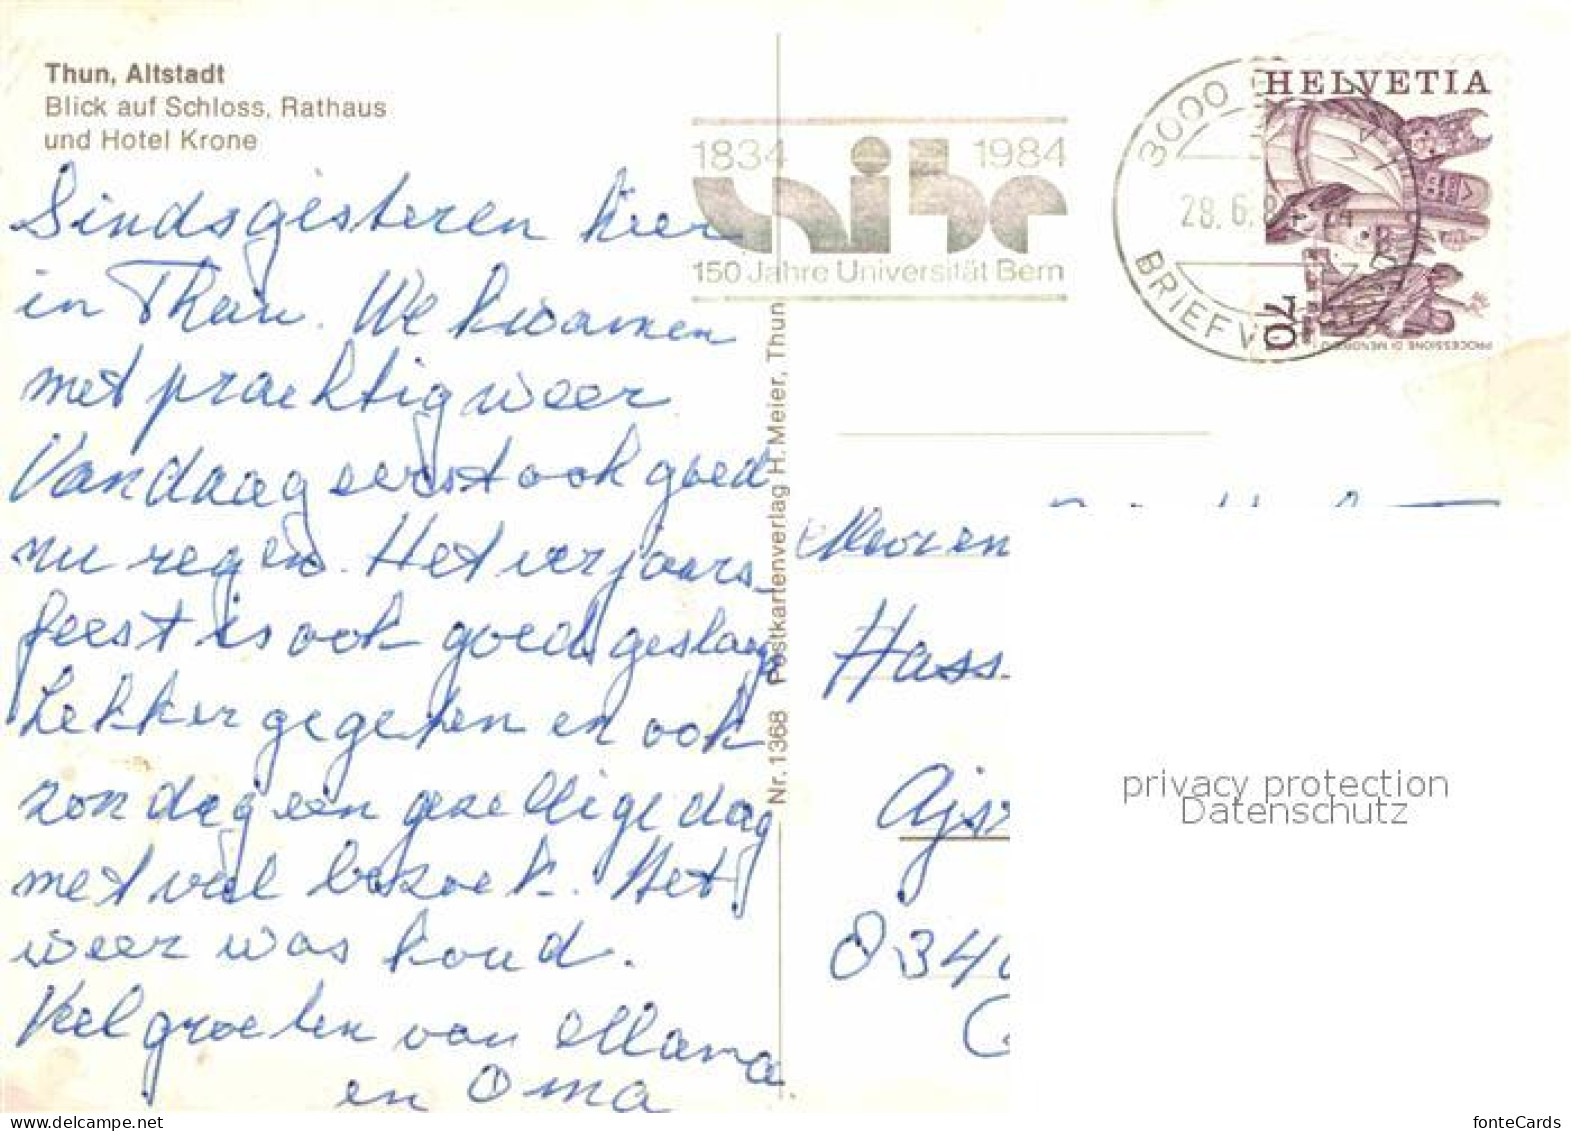 Thun, Altstadt
Blick auf Schloss, Rathaus
und Hotel Krone
Sindsgisteren hier
in Thun. We kwamen
met prachtig weer
Vandaag eerst ook goed
nu regen. Het verjaars-
feest is ook goed geslaagd
Lekker gegeten en ook
zondag een gezellige dag
met veel bezoek. Het
weer was koud.
Veel groeten van Mama
en Oma
Nr. 1368 Postkartenverlag H. Meier, Thun
1834 1984
unibe
150 Jahre Universität Bern
3000
28.6.
BRIEFV
HELVETIA
70
PROCESSIONE DI MENDRISIO
Hass
834
privacy protection
Datenschutz
fonteCards